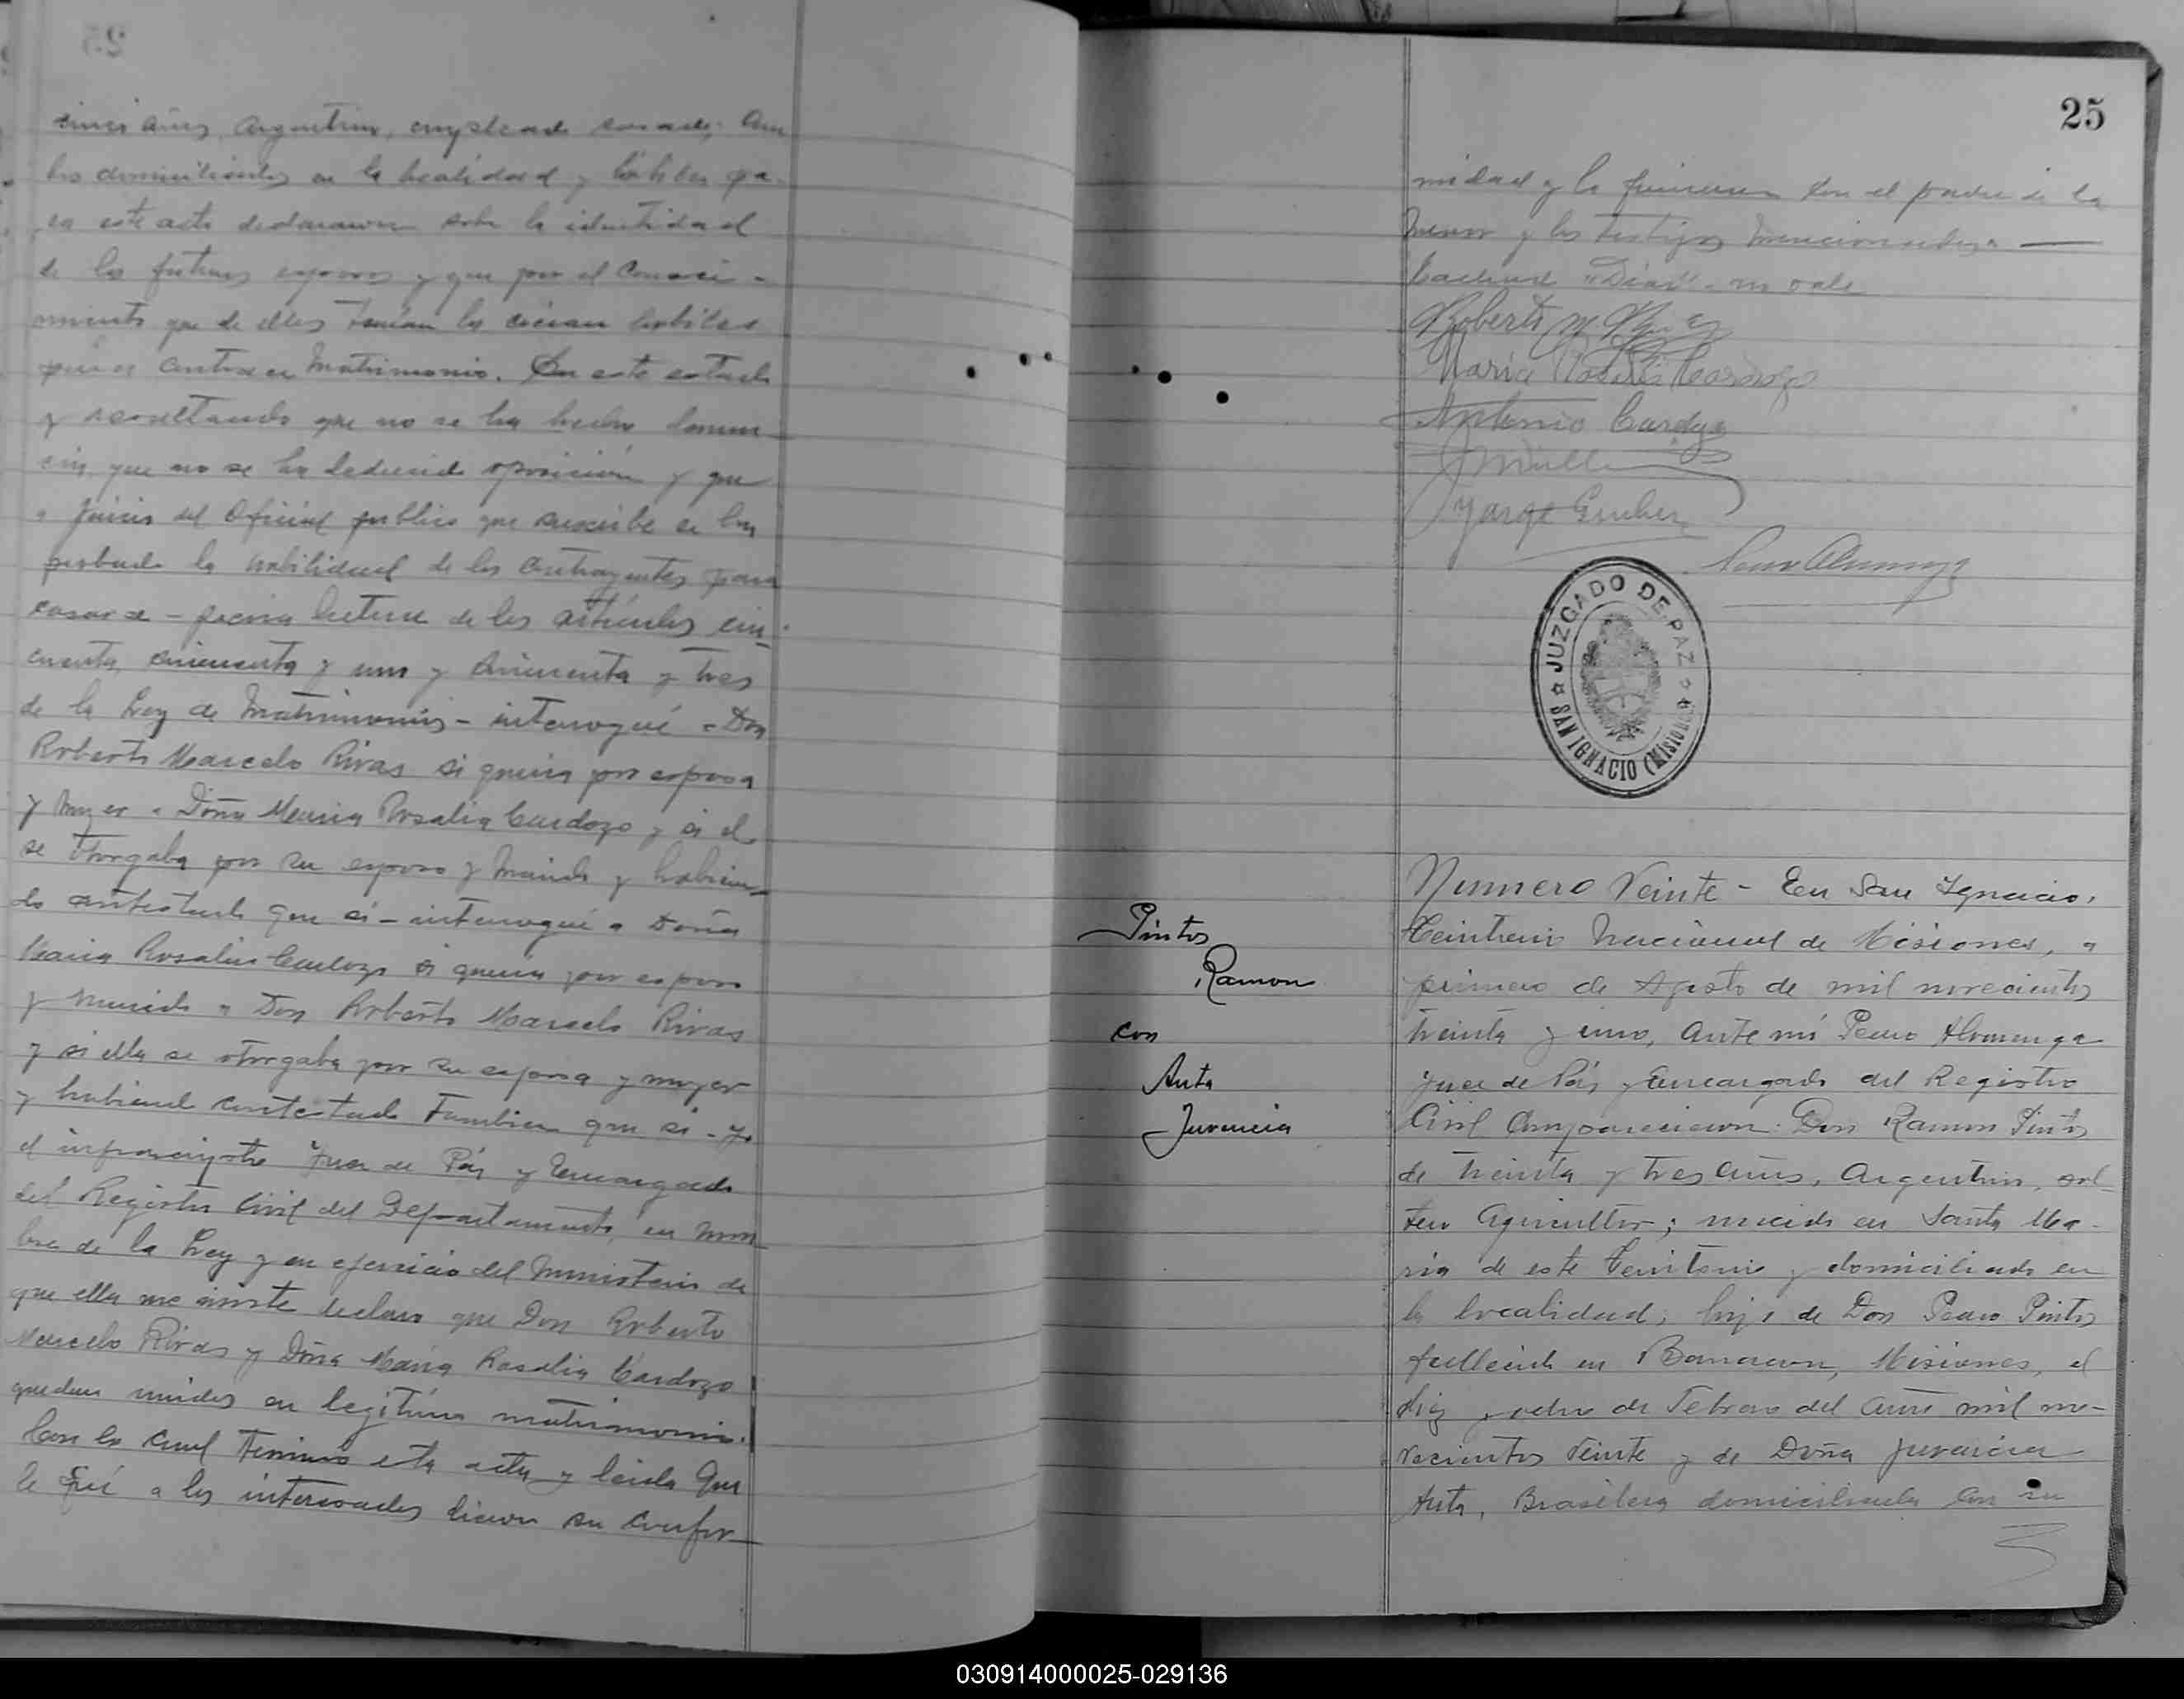 cinco años, Argentino, empleado casado; Am
bos domiciliados en la localidad y hábiles pa-
ra este acto declararon sobre la identidad
de los futuros esposos y que por el conoci-
miento que de ellos tenían los creían hábiles
para contraer Matrimonio. En este estado
y resultando que no se ha hecho denun-
cia, que no se ha deducido oposición y que
a juicio del Oficial publico que suscribe se ha
probado la habilidad de los contrayentes para
casarse - previa lectura de los artículos cin-
cuenta, cincuenta y uno y cincuenta y tres
de la Ley de Matrimonio - interrogué a Don
Roberto Marcelo Rivas si queria por esposa
y mujer a Doña Maria Rosalia Cardozo y si el
se otorgaba por su esposo y marido y habien-
do contestado que si - interrogué a Doña
Maria Rosalia Cardozo si queria por esposo
y marido a Don Roberto Marcelo Rivas
y si ella se otorgaba por su esposa y mujer
y habiendo contestado tambien que si - yo
el infrascripto Juez de Páz y Encargado
del Registro Civil del Departamento, en nom-
bre de la Ley y en ejercicio del Ministerio de
que ella me inviste declaro que Don Roberto
Marcelo Rivas y Doña Maria Rosalia Cardozo
quedan unidos en legítimo matrimonio.
Con lo cual termino esta acta y leida que
le fué a los interesados dieron su confor-
25
midad y la firmaron con el padre de la
menor y los testigos mencionados. —
no vale
Maria Rosalia Cardozo
Antonio Cardozo
Jorge Gruber
JUZGADO DE PAZ
SAN IGNACIO (MISIONES)
Pintos
Ramon
con
Anta
Juvencia
Numero Veinte - En San Ignacio,
Territorio Nacional de Misiones, a
primero de Agosto de mil novecientos
treinta y uno, ante mí Pedro Alvarenga
Juez de Páz y Encargado del Registro
Civil Comparecieron: Don Ramon Pintos
de treinta y tres años, Argentino, sol-
tero Agricultor; nacido en Santa Ma-
ria de este Territorio y domiciliado en
la localidad; hijo de Don Pedro Pintos
fallecido en Misiones, el
diez y ocho de Febrero del año mil no-
vecientos veinte y de Doña Juvencia
Anta, Brasilera domiciliada con su
030914000025-029136